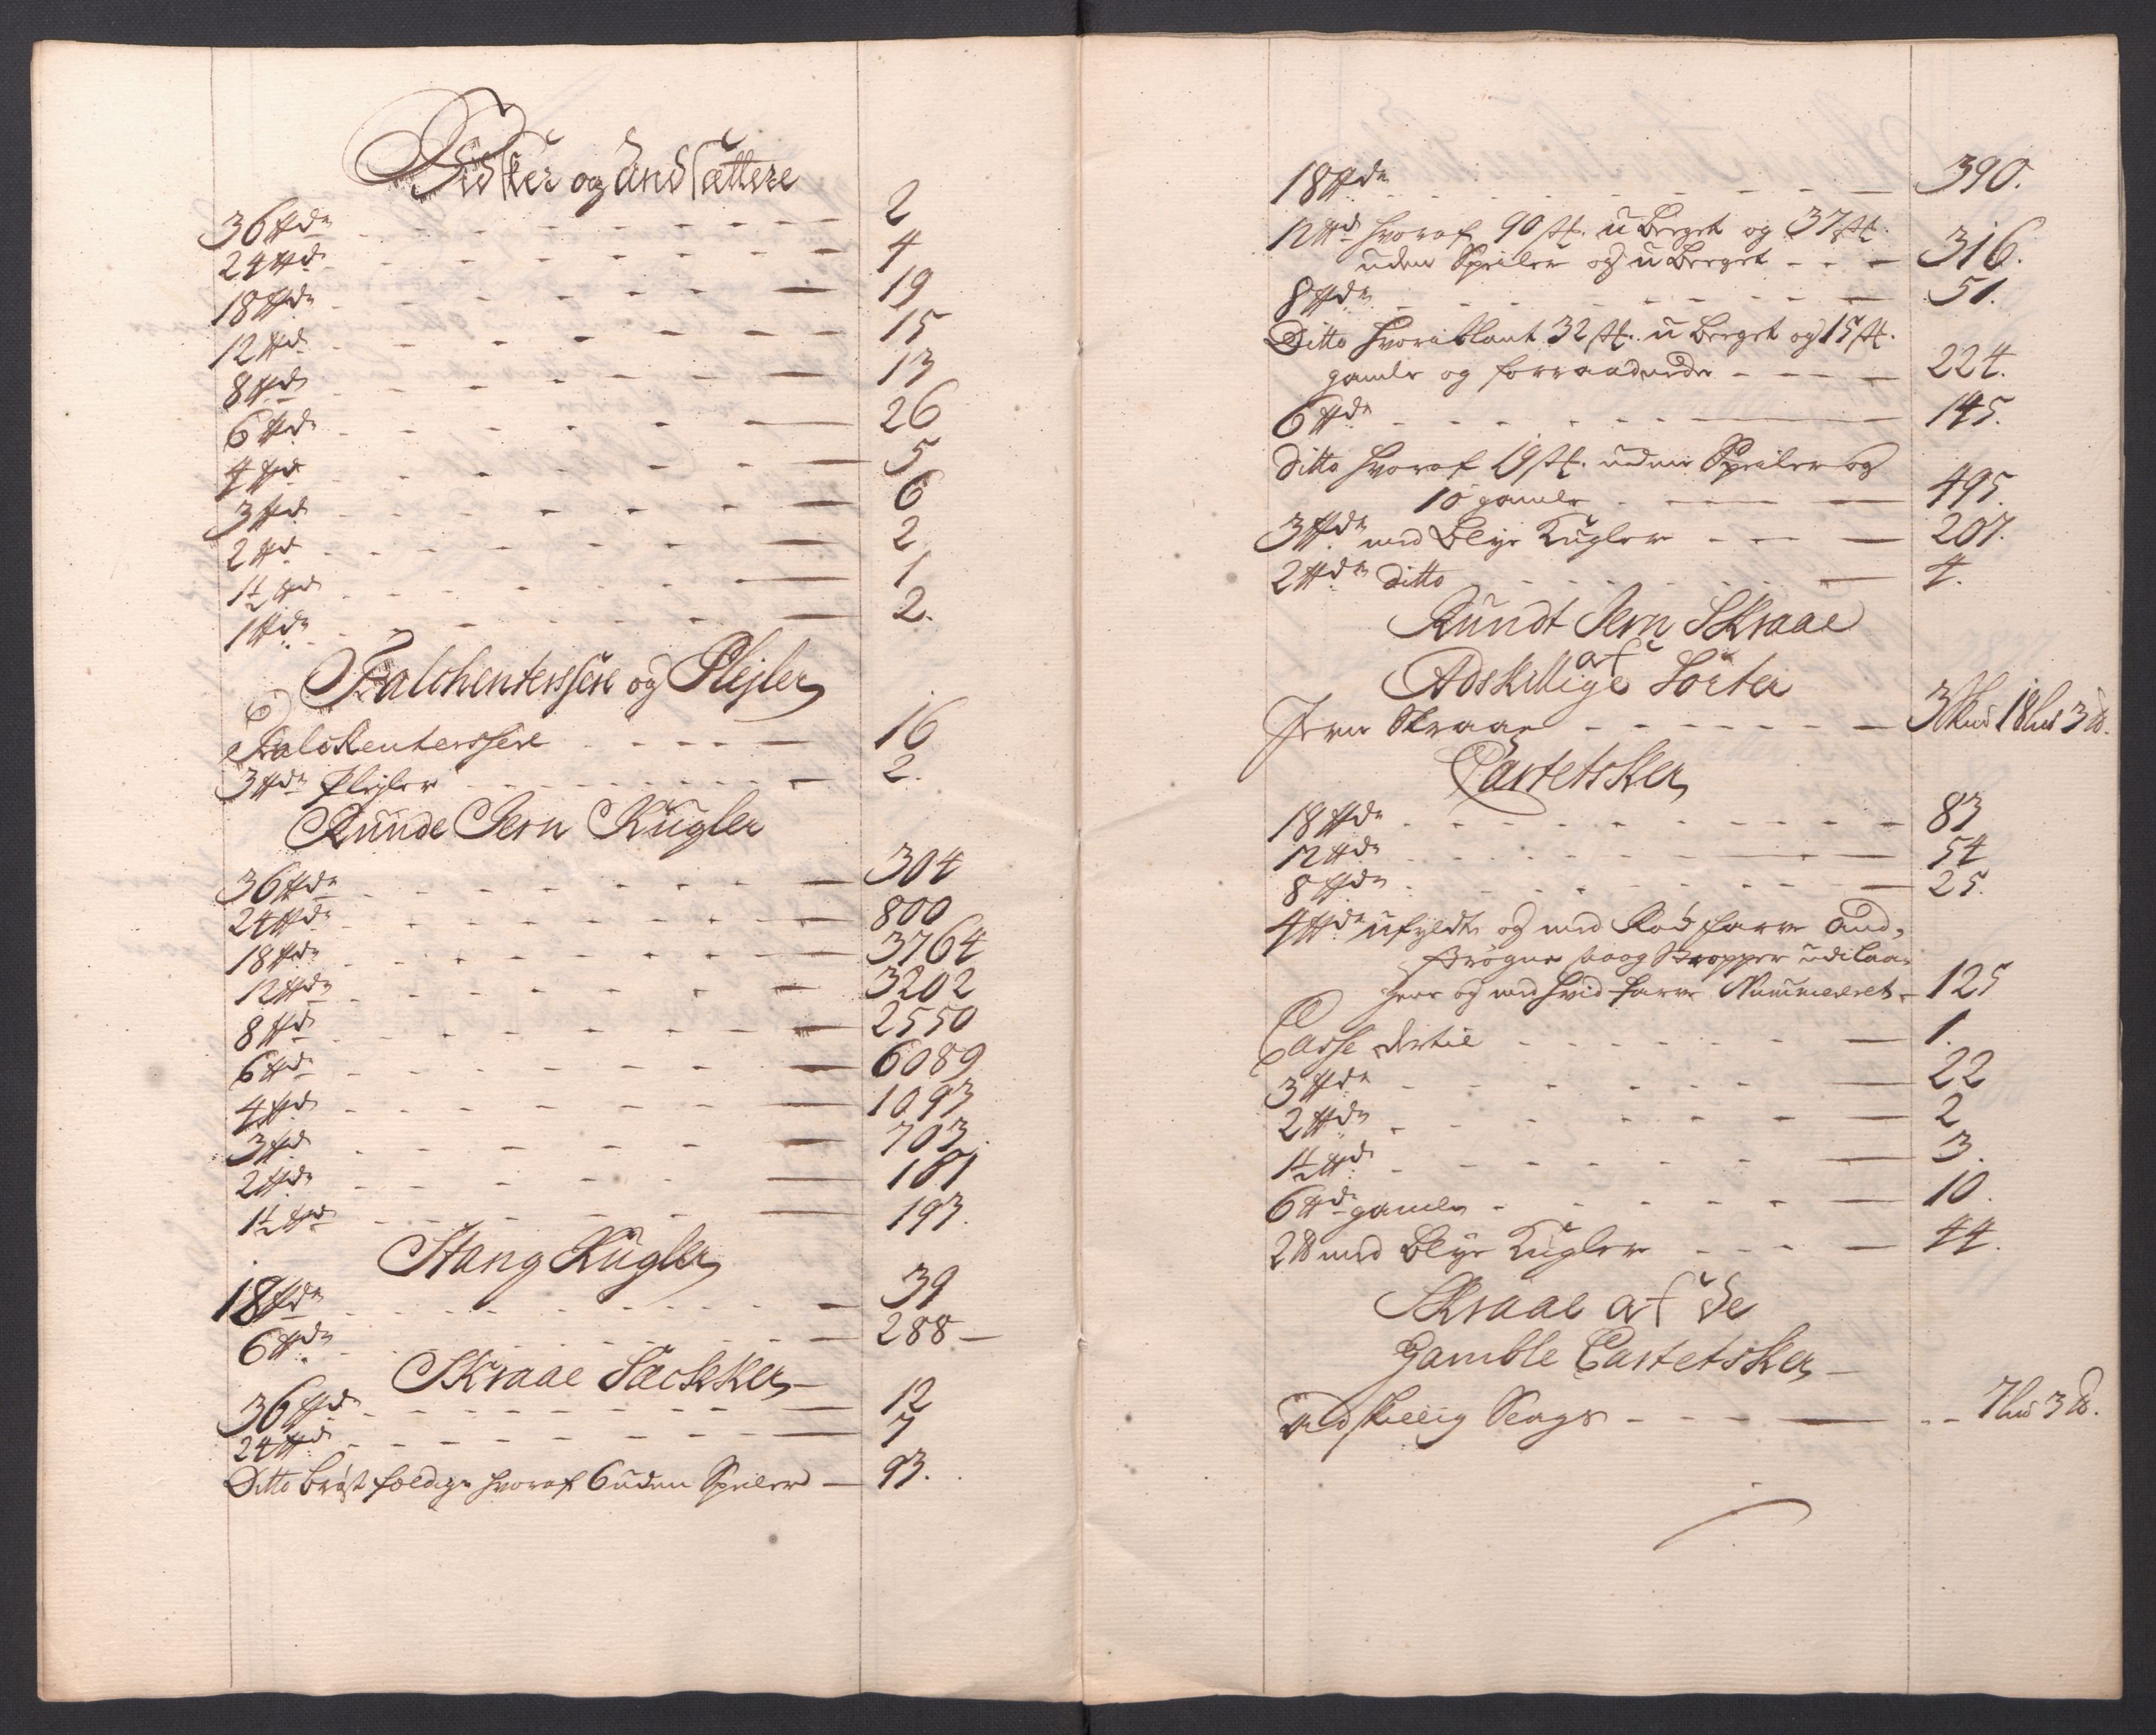 Visker og Andsættere
36 ℔de 2
24 ℔d 4
18 ℔de 19
12 ℔d 15
8 ℔d 13
6 ℔d 26
4 ℔d 5
3 ℔d 6
2 ℔d 2
1½ ℔d 1
1 ℔de 2.
Falchenterssere og Plejler
Falckenterssere 16
3 ℔de Plejler 2.
Runde Jern Kugler
36 ℔de 304
24 ℔de 800
18 ℔de 3764
12 ℔de 3202
8 ℔d 2550
6 ℔d 6089
4 ℔d 1093
3 ℔d 703.
2 ℔d 181
1½ ℔d 193.
Stang Kugler
18 ℔de 39
6 ℔de 288
Skraae Sæckker
36 ℔de 12
24 ℔d 7
Ditto brøstfældige hvoraf 6 uden Speiler 93.
18 ℔de 390.
12 ℔d hvoraf 90 st. u Berget og 37 st.
uden Speiler og u Berget 316.
8 ℔de 51.
Ditto hvoriblant 32 st. u Berget og 15 st.
gamle og forraadnede 224.
6 ℔de 145.
Ditto hvoraf 19 st. uden Speiler og
10 gamle 495.
3 ℔de med Blye Kugler 207.
2 ℔de Ditto 4.
Rundt Jern Skraae
af
Adskillige Sorter
Jern Skraae 3 Skud 18 Lud 3 ℔.
Cartetsker
18 ℔de 83
12 ℔de 54
8 ℔de 25.
4 ℔de ufyldte og med Rød farve and,
og med hvid farve Nummeret 125
Casse dertil 1.
3 ℔de 22
2 ℔de 2
1½ ℔d 3.
6 ℔de gamle 10.
2 ℔ med Blye Kugler 44.
Skraae af de
Gamble Cartetsker
Adskillig Slags 7 Lud 3 ℔.